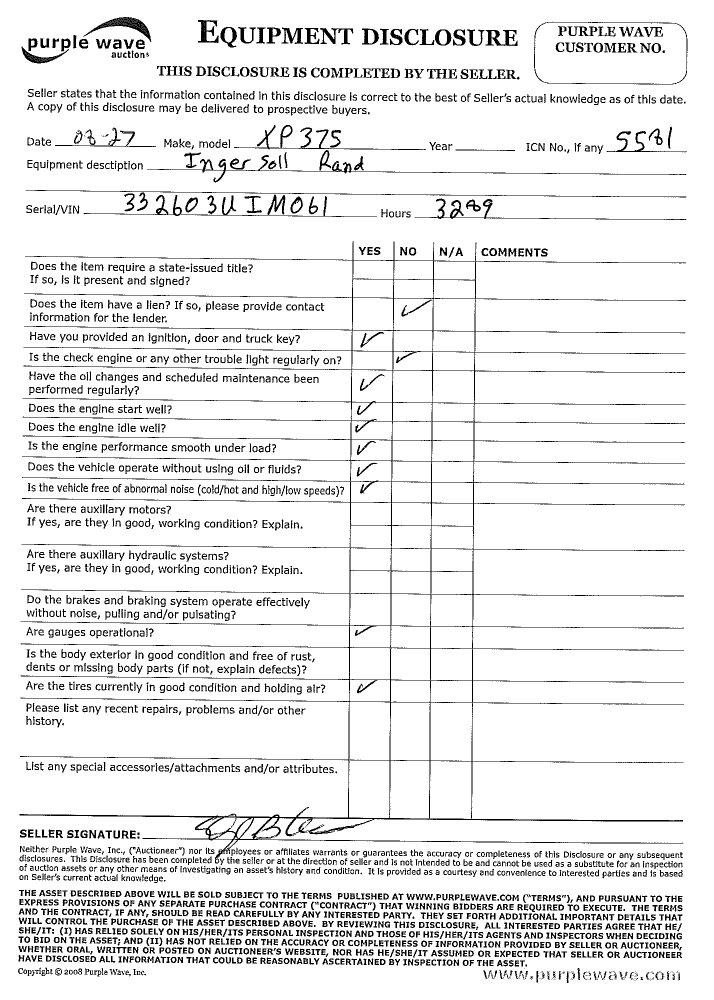 purple wave
auctions
EQUIPMENT DISCLOSURE
THIS DISCLOSURE IS COMPLETED BY THE SELLER.
PURPLE WAVE
CUSTOMER NO.
Seller states that the information contained in this disclosure is correct to the best of Seller's actual knowledge as of this date.
A copy of this disclosure may be delivered to prospective buyers.
Date 08-27 Make, model XP375 Year ICN No., if any 5581
Equipment desctiption Inger Soll Rand
Serial/VIN 332603UIM061 Hours 3289
YES NO N/A COMMENTS
Does the item require a state-issued title?
If so, is it present and signed?
Does the item have a lien? If so, please provide contact
information for the lender.
Have you provided an ignition, door and truck key?
Is the check engine or any other trouble light regularly on?
Have the oil changes and scheduled maintenance been
performed regularly?
Does the engine start well?
Does the engine idle well?
Is the engine performance smooth under load?
Does the vehicle operate without using oil or fluids?
Is the vehicle free of abnormal noise (cold/hot and high/low speeds)?
Are there auxiliary motors?
If yes, are they in good, working condition? Explain.
Are there auxiliary hydraulic systems?
If yes, are they in good, working condition? Explain.
Do the brakes and braking system operate effectively
without noise, pulling and/or pulsating?
Are gauges operational?
Is the body exterior in good condition and free of rust,
dents or missing body parts (if not, explain defects)?
Are the tires currently in good condition and holding air?
Please list any recent repairs, problems and/or other
history.
List any special accessories/attachments and/or attributes.
SELLER SIGNATURE:
Neither Purple Wave, Inc., ("Auctioneer") nor its employees or affiliates warrants or guarantees the accuracy or completeness of this Disclosure or any subsequent
disclosures. This Disclosure has been completed by the seller or at the direction of seller and is not intended to be and cannot be used as a substitute for an inspection
of auction assets or any other means of investigating an asset's history and condition. It is provided as a courtesy and convenience to interested parties and is based
on Seller's current actual knowledge.
THE ASSET DESCRIBED ABOVE WILL BE SOLD SUBJECT TO THE TERMS PUBLISHED AT WWW.PURPLEWAVE.COM ("TERMS"), AND PURSUANT TO THE
EXPRESS PROVISIONS OF ANY SEPARATE PURCHASE CONTRACT ("CONTRACT") THAT WINNING BIDDERS ARE REQUIRED TO EXECUTE. THE TERMS
AND THE CONTRACT, IF ANY, SHOULD BE READ CAREFULLY BY ANY INTERESTED PARTY. THEY SET FORTH ADDITIONAL IMPORTANT DETAILS THAT
WILL CONTROL THE PURCHASE OF THE ASSET DESCRIBED ABOVE. BY REVIEWING THIS DISCLOSURE, ALL INTERESTED PARTIES AGREE THAT HE/
SHE/IT: (I) HAS RELIED SOLELY ON HIS/HER/ITS PERSONAL INSPECTION AND THOSE OF HIS/HER/ITS AGENTS AND INSPECTORS WHEN DECIDING
TO BID ON THE ASSET; AND (II) HAS NOT RELIED ON THE ACCURACY OR COMPLETENESS OF INFORMATION PROVIDED BY SELLER OR AUCTIONEER,
WHETHER ORAL, WRITTEN OR POSTED ON AUCTIONEER'S WEBSITE, NOR HAS HE/SHE/IT ASSUMED OR EXPECTED THAT SELLER OR AUCTIONEER
HAVE DISCLOSED ALL INFORMATION THAT COULD BE REASONABLY ASCERTAINED BY INSPECTION OF THE ASSET.
Copyright © 2008 Purple Wave, Inc.
www.purplewave.com